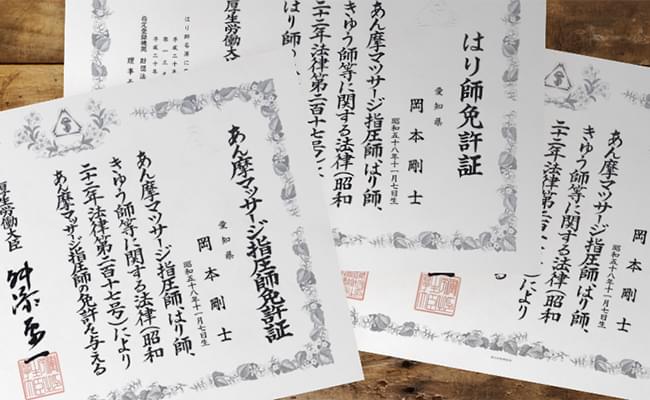 あん摩マッサージ指圧師免許証
愛知県
岡本剛士
昭和五十八年十一月七日生
あん摩マッサージ指圧師、はり師、
きゅう師等に関する法律(昭和
二十二年法律第二百十七号)により
あん摩マッサージ指圧師の免許を与える
厚生労働大臣
舛添要一
はり師免許証
愛知県
岡本剛士
昭和五十八年十一月七日生
あん摩マッサージ指圧師、はり師、
きゅう師等に関する法律(昭和
二十二年法律第二百十七号)に
はり師の
はり師名簿に
平成二十年
平成二十年
指定登録機関 財団法
理事
厚生労働大
岡本剛士
昭和五十八年十一月七日生
マッサージ指圧師、はり師、
きゅう師等に関する法律(昭和
二十二年法律第二百
により